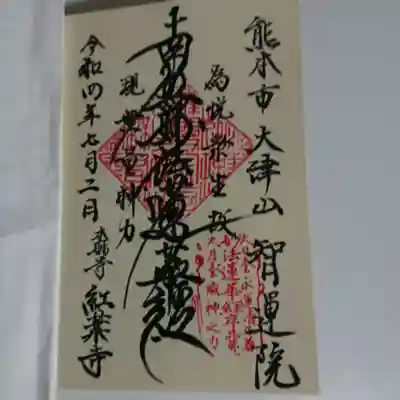 熊本市 大津山 智運院
為悦衆生故
南無妙法蓮華経
現無量神力
令和四年七月二日 紅葉寺